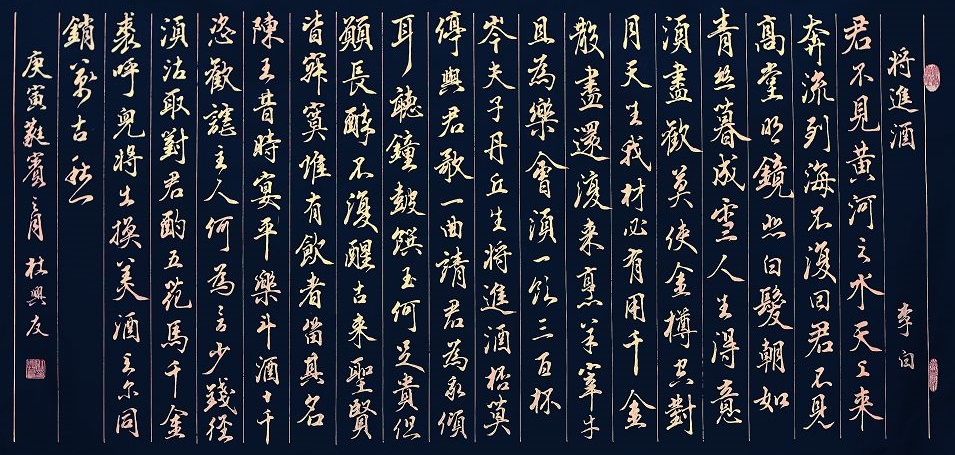 将進酒 李白
君不見黃河之水天上来
奔流到海不復回君不見
高堂明鏡悲白髮朝如
青丝暮成雪人生得意
須盡歡莫使金樽空對
月天生我材必有用千金
散盡還復来烹羊宰牛
且為樂會須一飲三百杯
岑夫子丹丘生将進酒杯莫
停與君歌一曲請君為我傾
耳聽鐘鼓饌玉何足貴但
願長醉不復醒古来聖賢
皆寂寞惟有飲者留其名
陳王昔時宴平樂斗酒十千
恣歡謔主人何為言少錢径
須沽取對君酌五花馬千金
裘呼兒将出換美酒与尔同
銷萬古愁
庚寅蕤賓之月杜興友